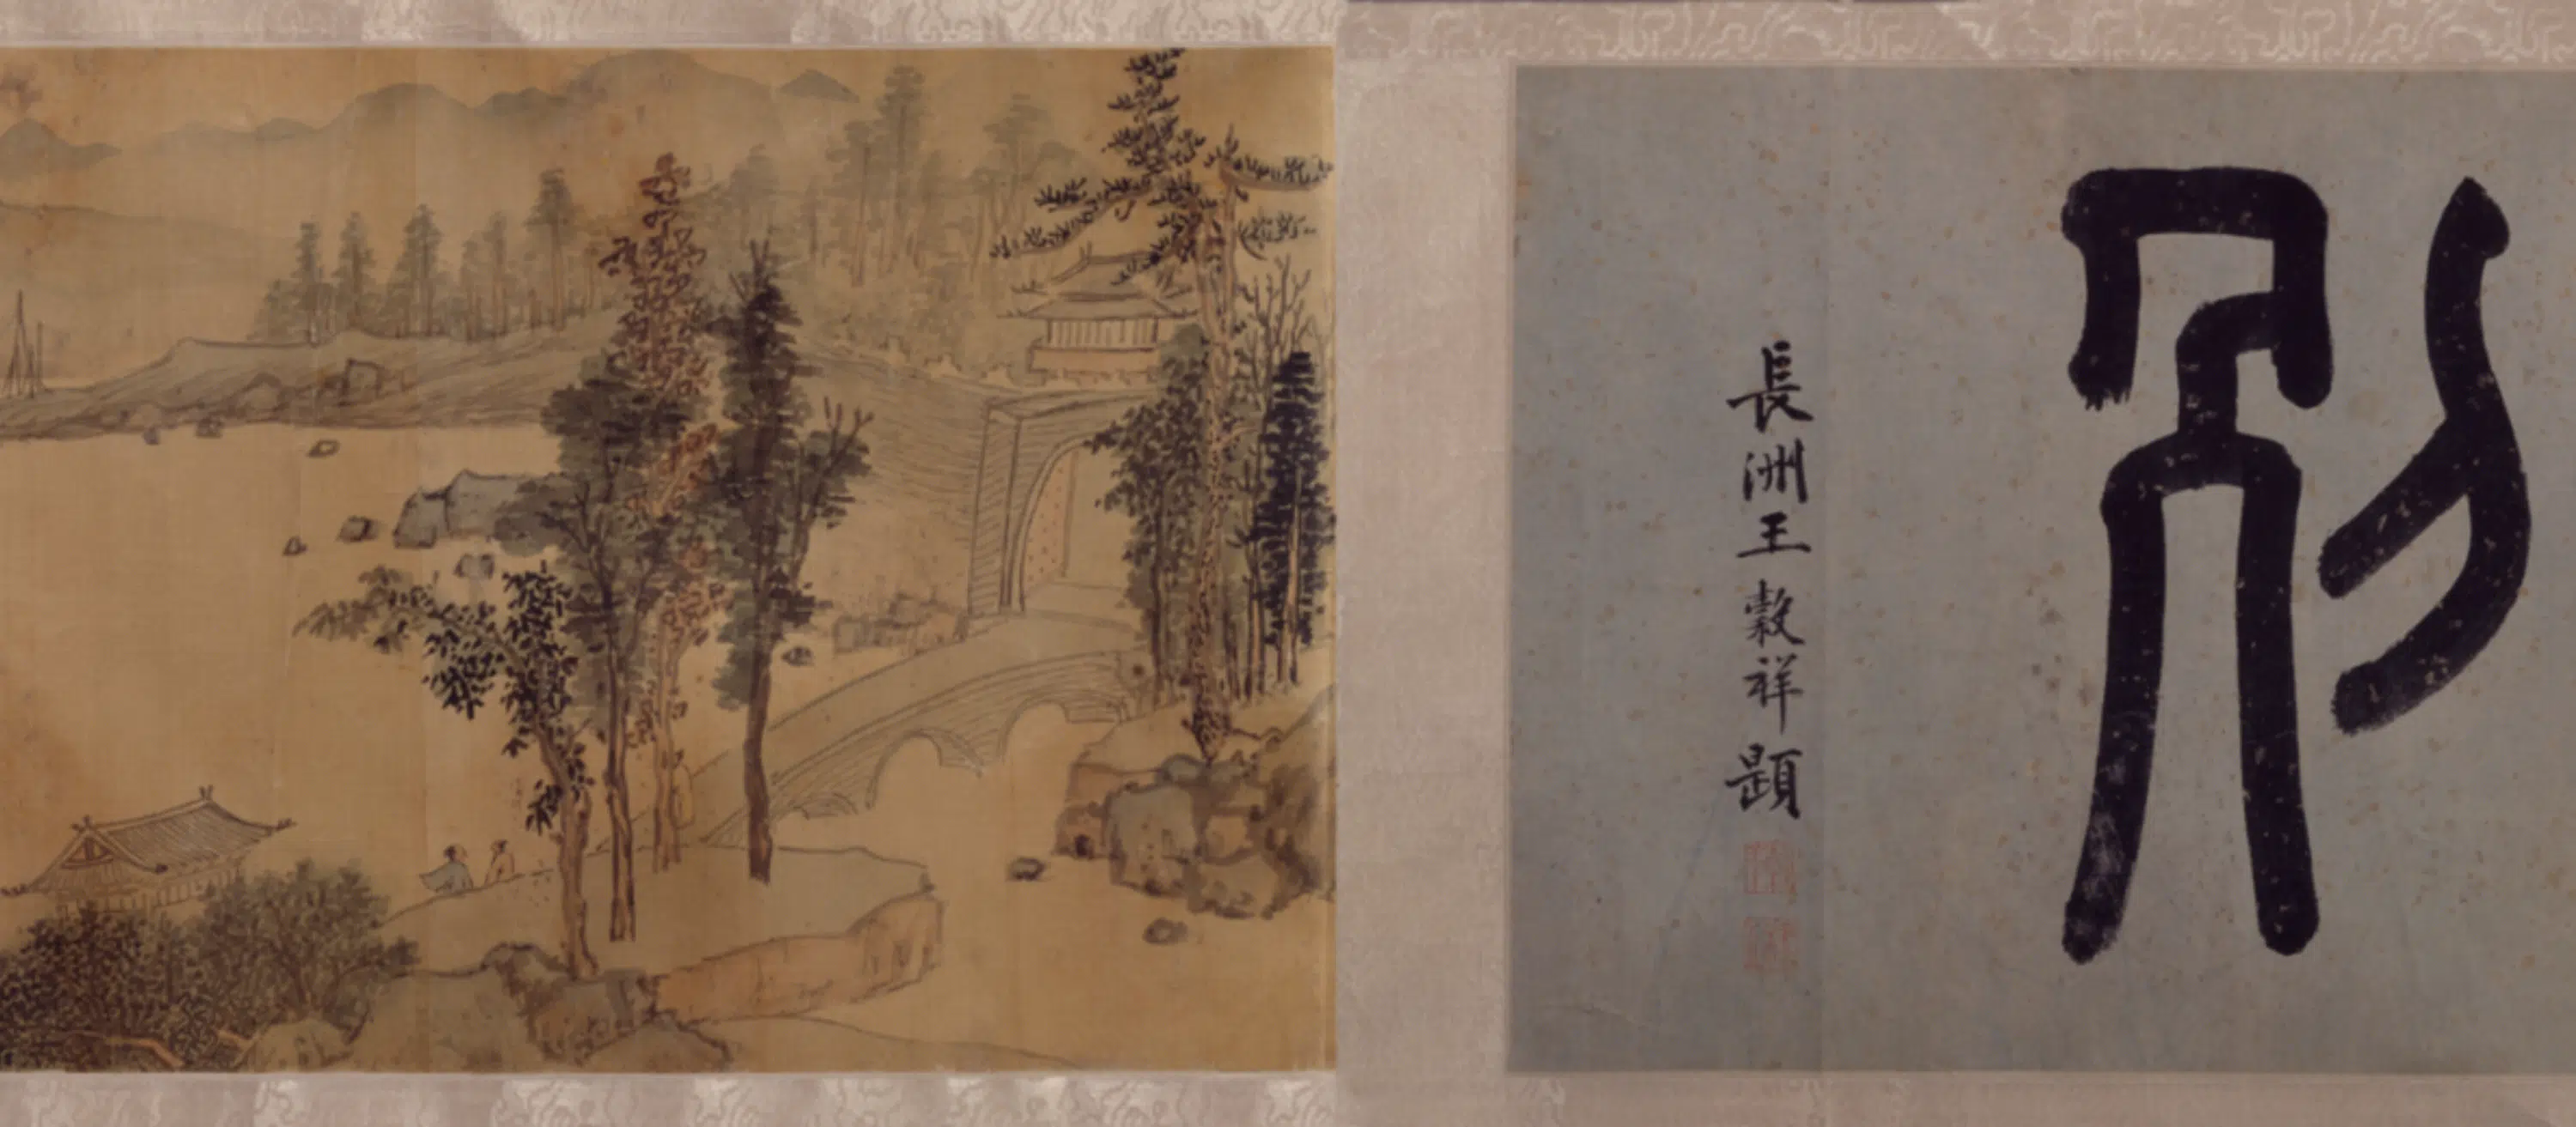 別
長洲王穀祥題